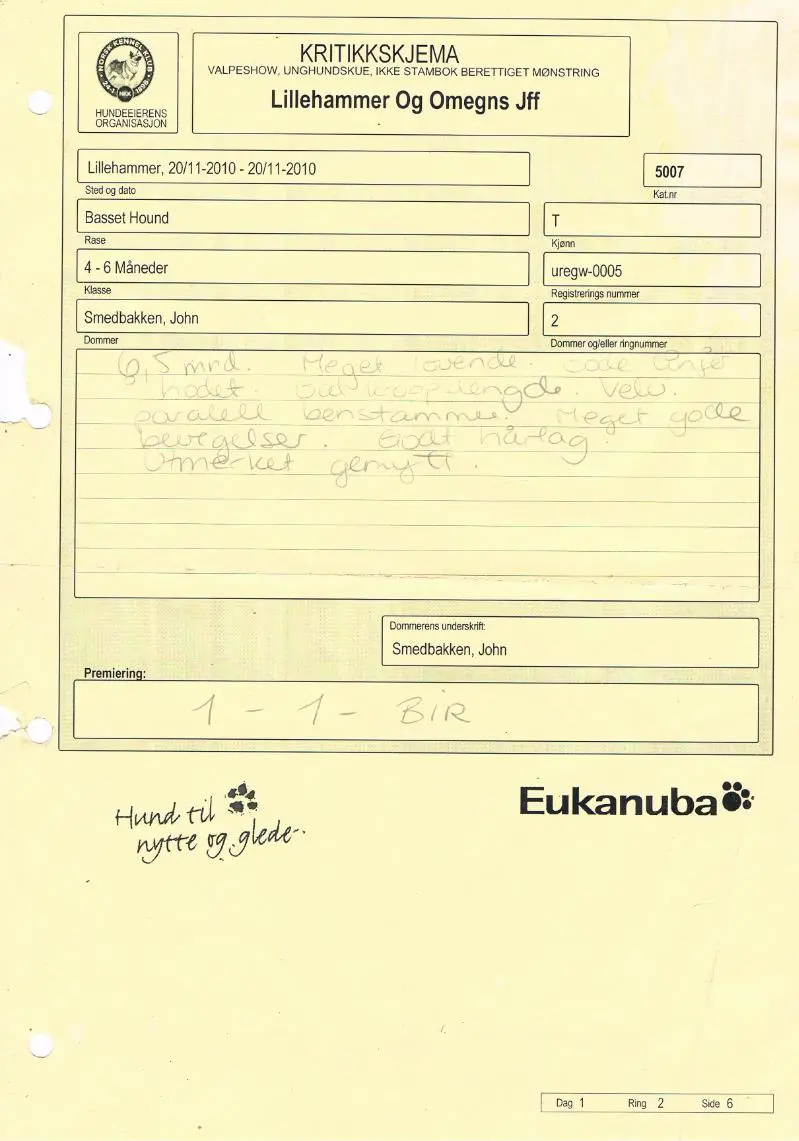 NORSK KENNEL KLUB
NKK
1898
HUNDEEIERENS
ORGANISASJON
KRITIKKSKJEMA
VALPESHOW, UNGHUNDSKUE, IKKE STAMBOK BERETTIGET MØNSTRING
Lillehammer Og Omegns Jff
Lillehammer, 20/11-2010 - 20/11-2010
5007
Sted og dato
Kat.nr
Basset Hound
T
Rase
Kjønn
4 - 6 Måneder
uregw-0005
Klasse
Registrerings nummer
Smedbakken, John
2
Dommer
Dommer og/eller ringnummer
6,5 mnd. Meget lovende. Gode linjer
i hodet. God kropp-lengde. Velv.
paralell benstamme. Meget gode
bevegelser. Godt hårlag.
Utmerket gemytt.
Dommerens underskrift:
Smedbakken, John
Premiering:
1 - 1 - BIR
Hund til
nytte og glede
Eukanuba
Dag 1 Ring 2 Side 6